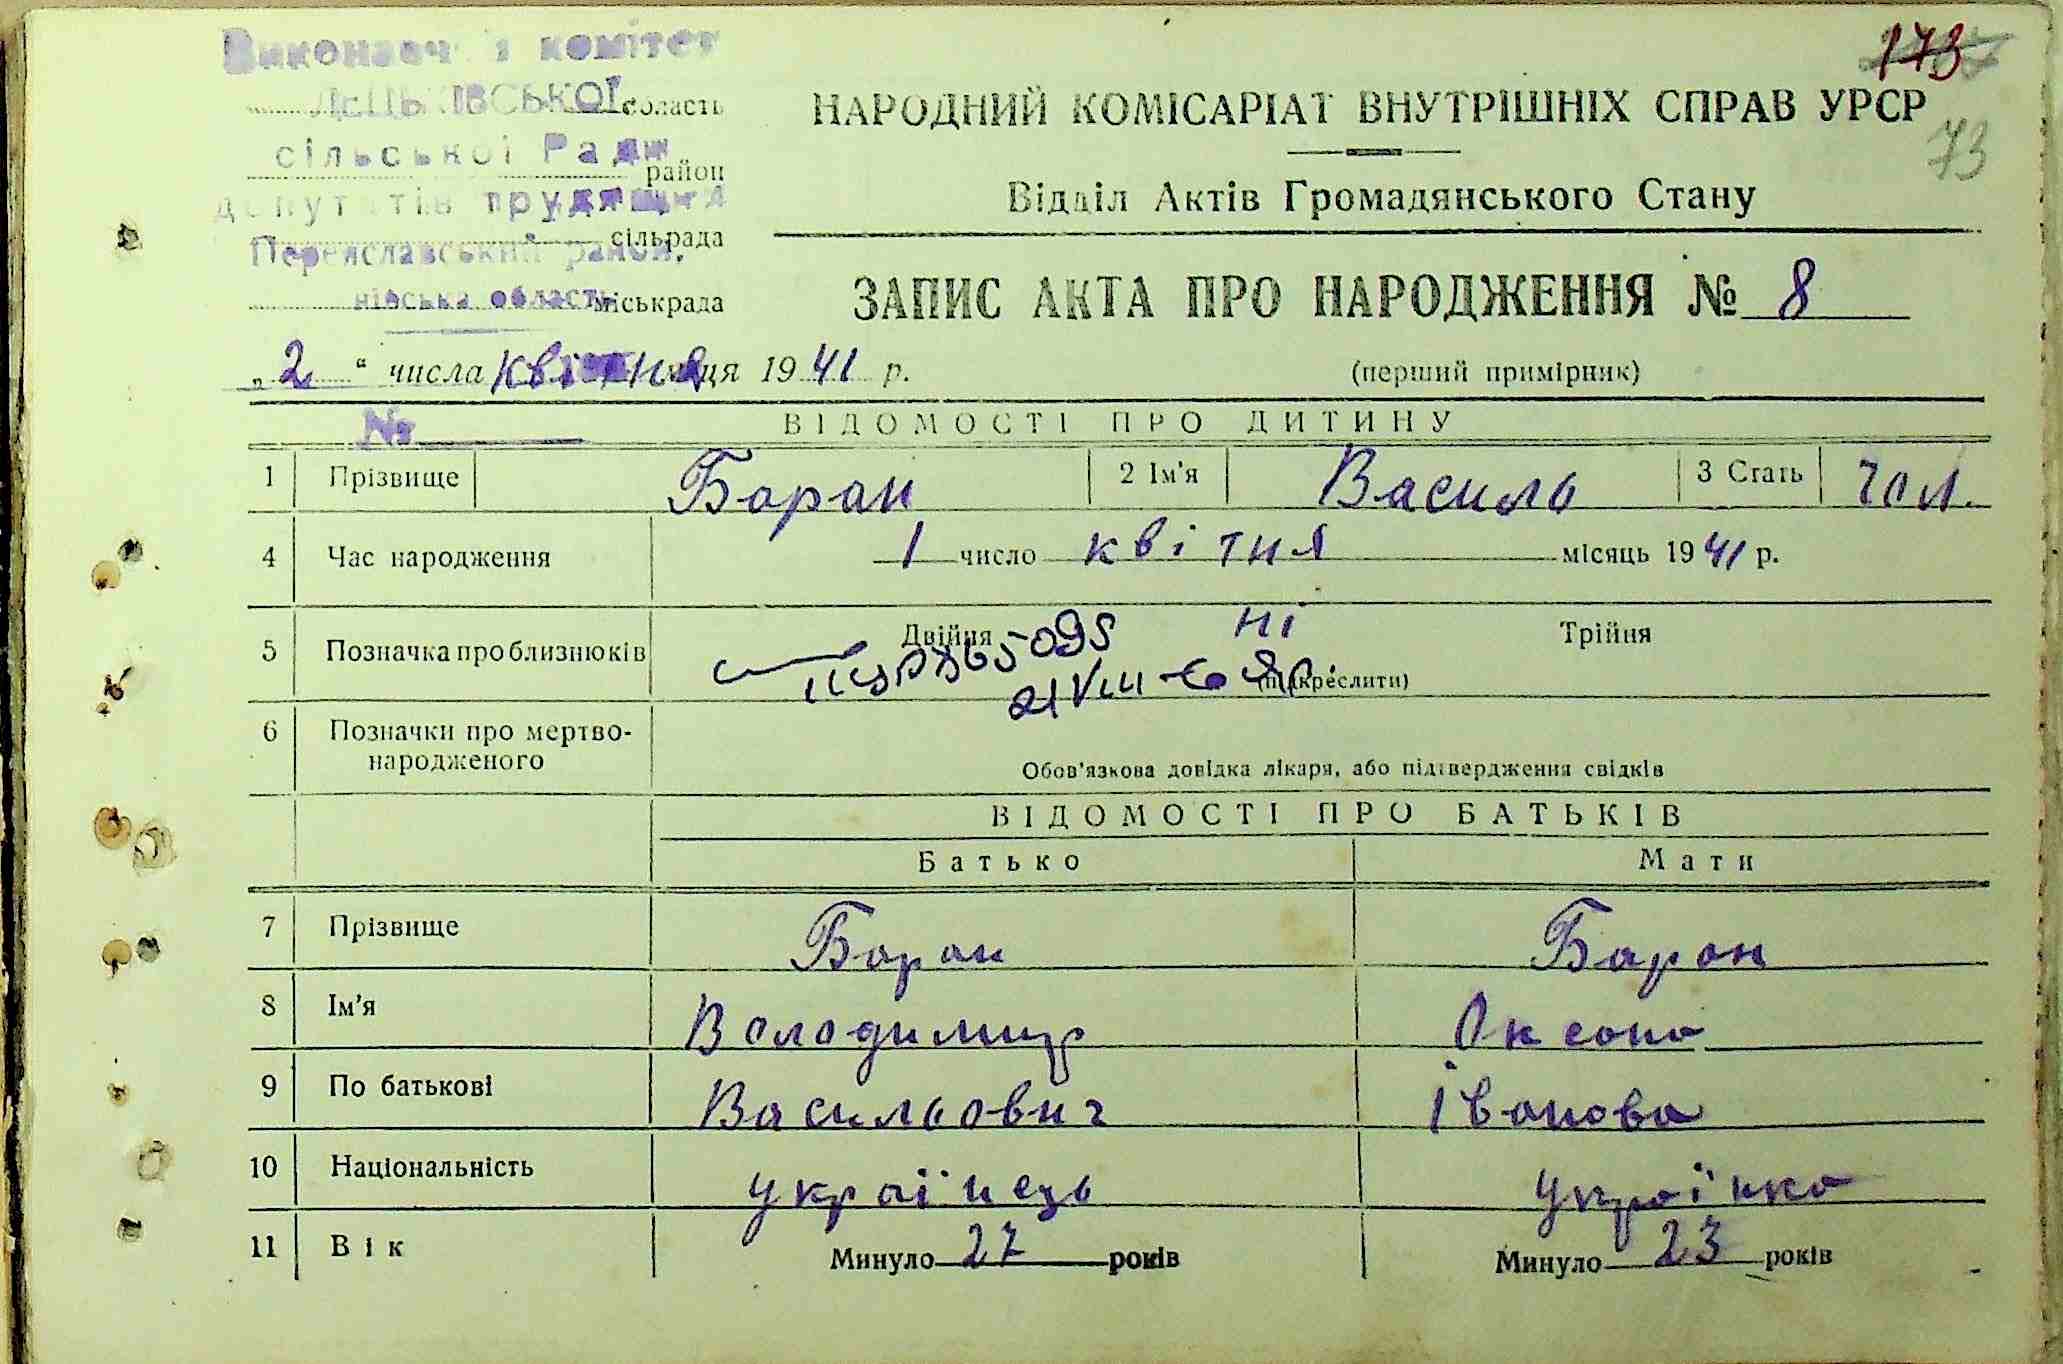 Виконавчий комітет
область
сільської Ради
район
депутатів трудящих
сільрада
Переяславський район,
область
міськрада
173
НАРОДНИЙ КОМІСАРІАТ ВНУТРІШНІХ СПРАВ УРСР
73
Відділ Актів Громадянського Стану
ЗАПИС АКТА ПРО НАРОДЖЕННЯ № 8
„2“ числа квітня 1941 р.
(перший примірник)
№
ВІДОМОСТІ ПРО ДИТИНУ
1 Прізвище Баран 2 Ім'я Василь 3 Стать чол.
4 Час народження 1 число квітня місяць 1941 р.
5 Позначка про близнюків Двійня ні Трійня
(підкреслити)
6 Позначки про мертво-
народженого
Обов'язкова довідка лікаря, або підтвердження свідків
ВІДОМОСТІ ПРО БАТЬКІВ
Батько Мати
7 Прізвище Баран Баран
8 Ім'я Володимир Оксана
9 По батькові Васильович Іванова
10 Національність українець українка
11 Вік Минуло 27 років Минуло 23 років